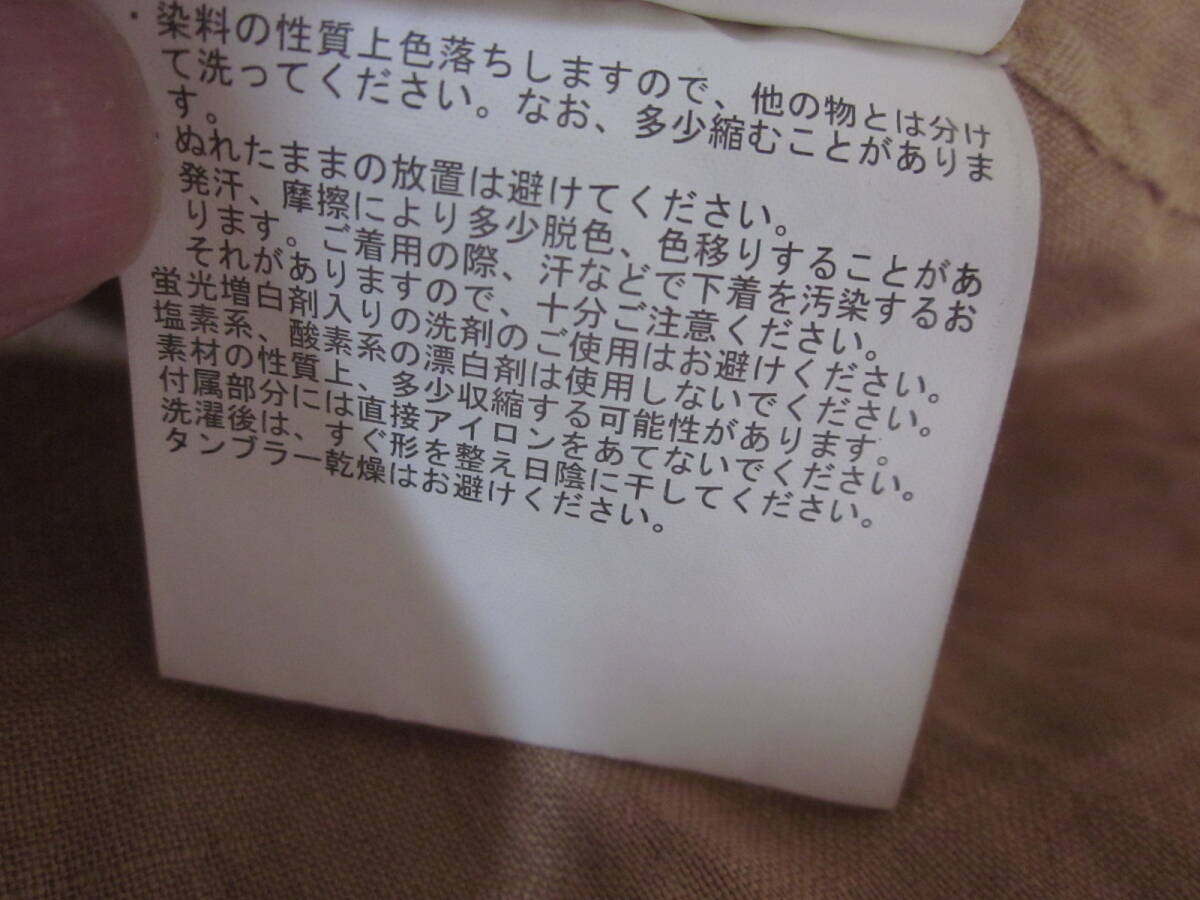 ・染料の性質上色落ちしますので、他の物とは分け
て洗ってください。なお、多少縮むことがありま
す。
・ぬれたままの放置は避けてください。
発汗、摩擦により多少脱色、色移りすることがあ
ります。ご着用の際、汗などで下着を汚染するお
それがありますので、十分ご注意ください。
蛍光増白剤入りの洗剤のご使用はお避けください。
塩素系、酸素系の漂白剤は使用しないでください。
素材の性質上、多少収縮する可能性があります。
付属部分には直接アイロンをあてないでください。
洗濯後は、すぐ形を整え日陰に干してください。
タンブラー乾燥はお避けください。